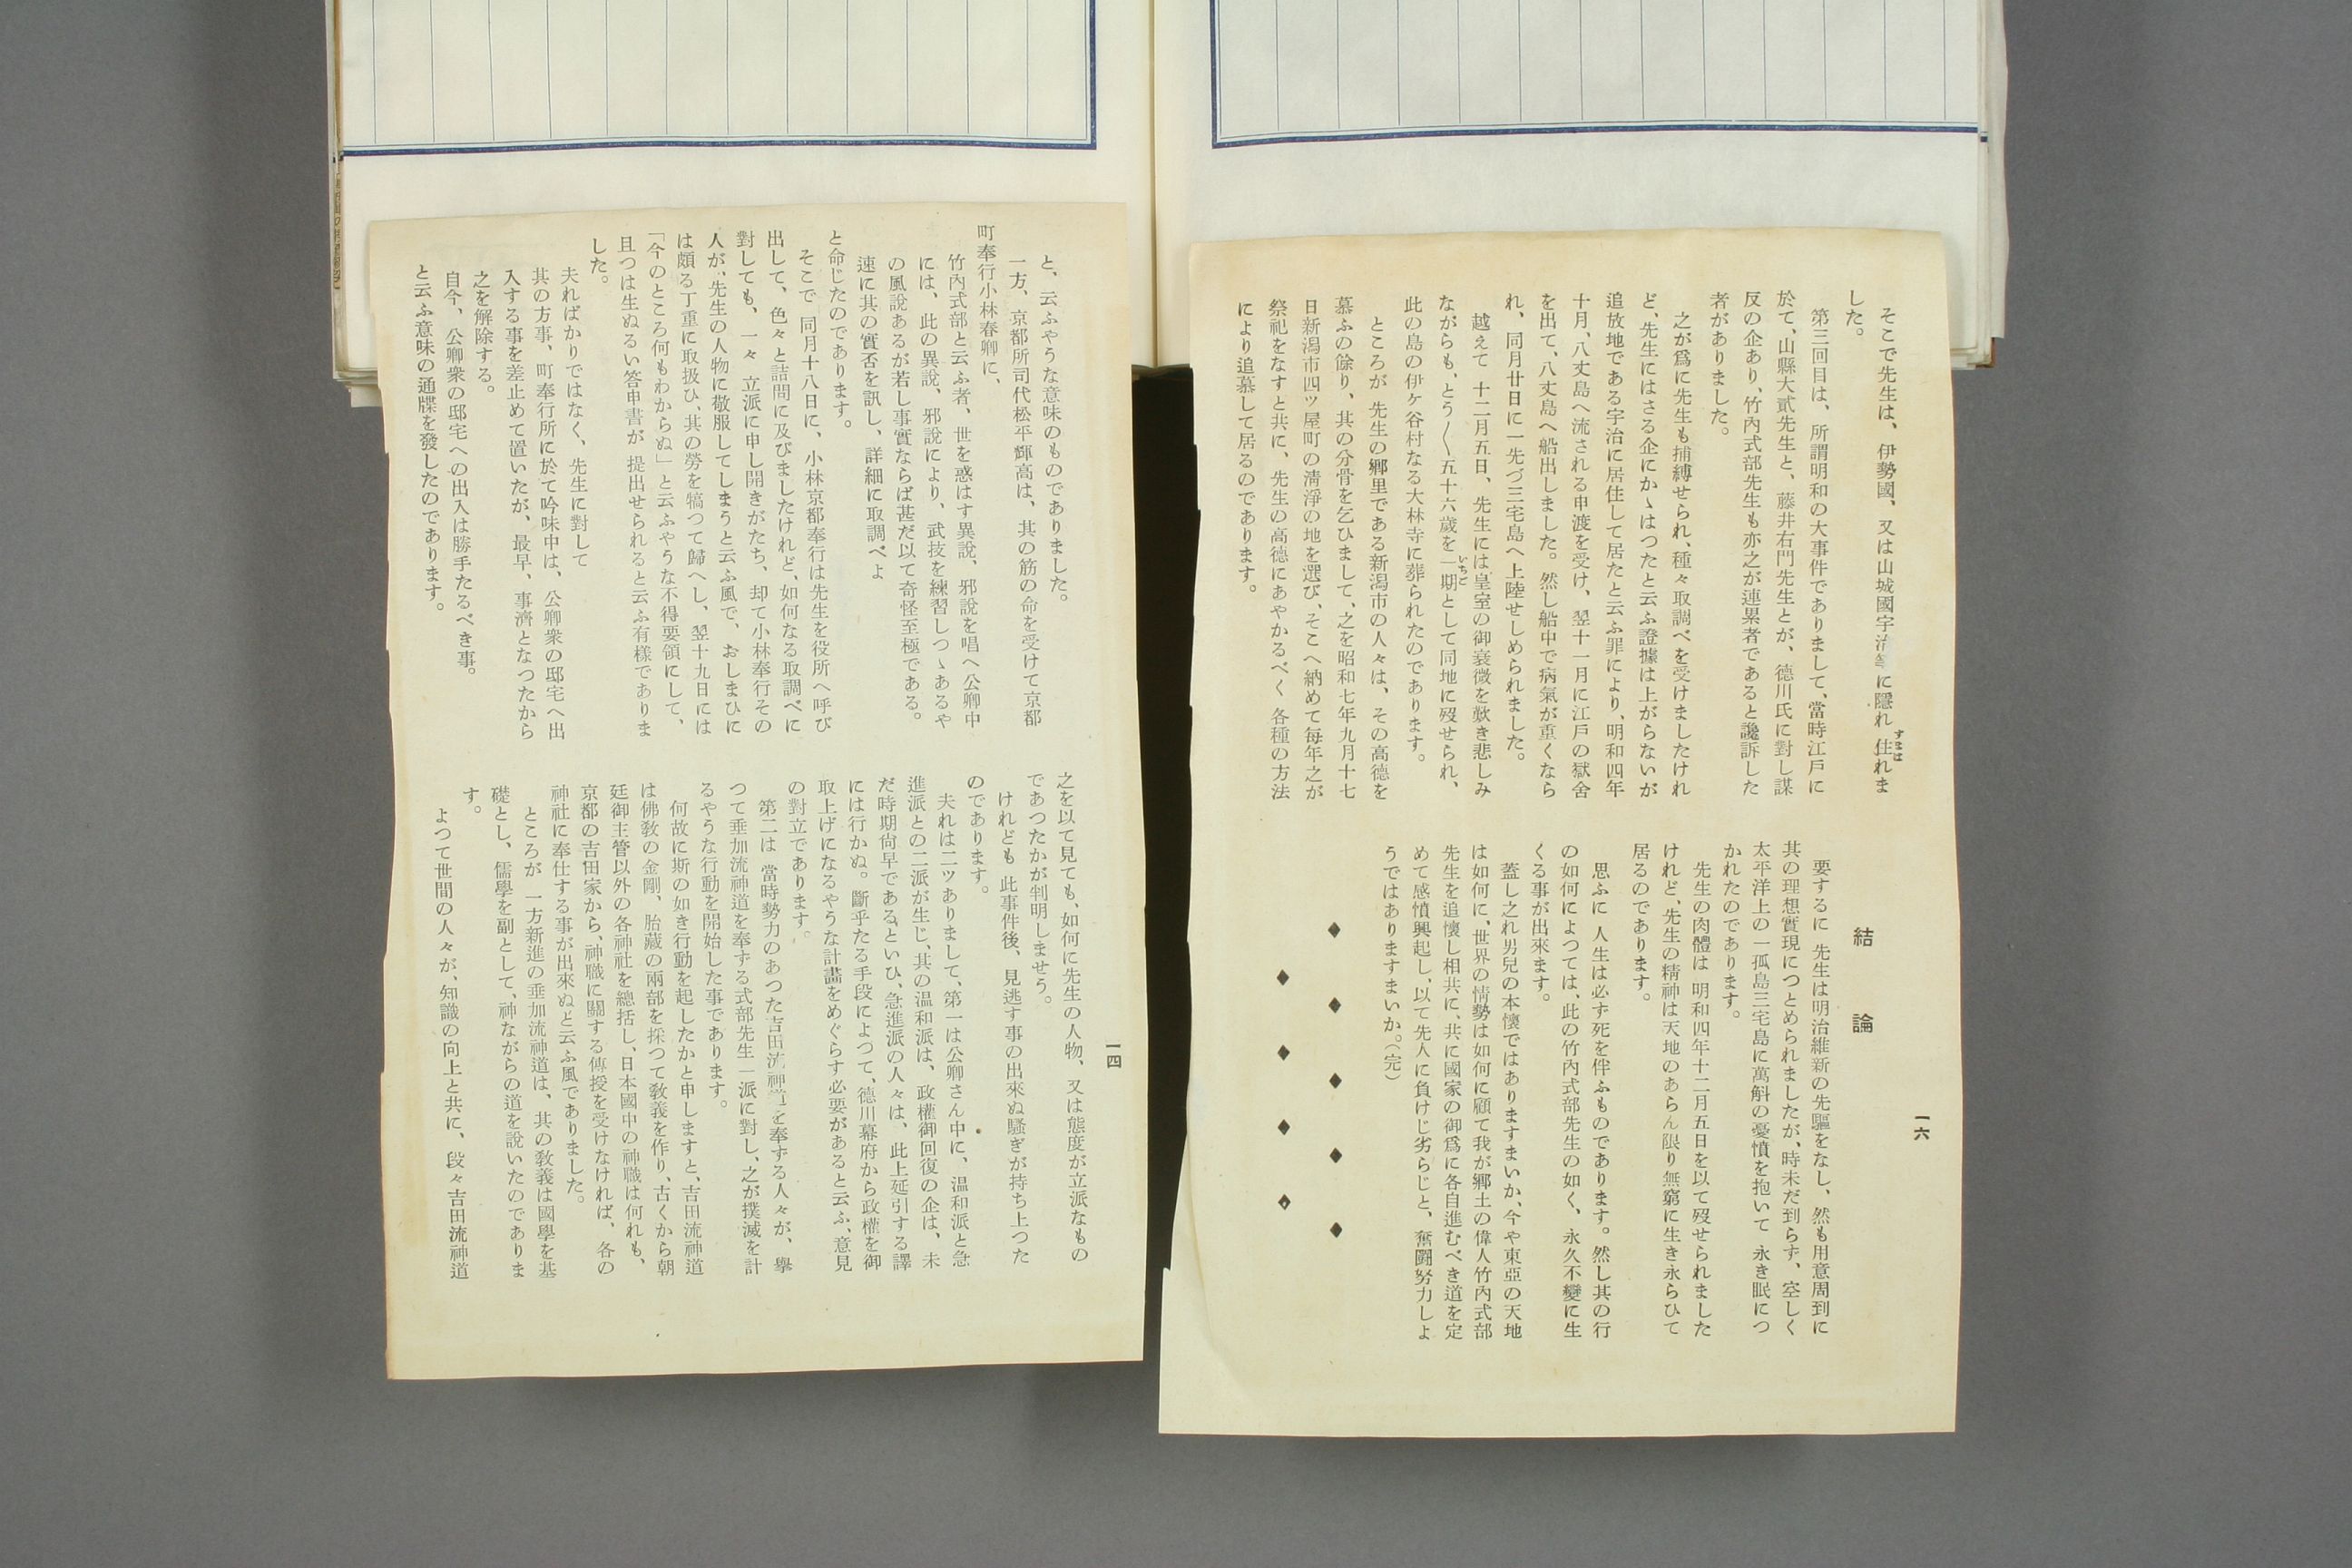 一六
そこで先生は、伊勢國、又は山城國宇治等に隱れ住れま
した。
第三回目は、所謂明和の大事件でありまして、當時江戸に
於て、山縣大貳先生と、藤井右門先生とが、德川氏に對し謀
反の企あり、竹內式部先生も亦之が連累者であると讒訴した
者がありました。
之が爲に先生も捕縛せられ、種々取調べを受けましたけれ
ど、先生にはさる企にかゝはつたと云ふ證據は上がらないが
追放地である宇治に居住して居たと云ふ罪により、明和四年
十月、八丈島へ流される申渡を受け、翌十一月に江戸の獄舍
を出て、八丈島へ船出しました。然し船中で病氣が重くなら
れ、同月廿日に一先づ三宅島へ上陸せしめられました。
越えて 十二月五日、先生には皇室の御衰微を歎き悲しみ
ながらも、とう〱五十六歲を一期として同地に歿せられ、
此の島の伊ヶ谷村なる大林寺に葬られたのであります。
ところが 先生の鄕里である新潟市の人々は、その高德を
慕ふの餘り、其の分骨を乞ひまして、之を昭和七年九月十七
日新潟市四ッ屋町の淸淨の地を選び、そこへ納めて每年之が
祭祀をなすと共に、先生の高德にあやかるべく 各種の方法
により追慕して居るのであります。
結論
要するに 先生は明治維新の先驅をなし、然も用意周到に
其の理想實現につとめられましたが、時未だ到らず、空しく
太平洋上の一孤島三宅島に萬斛の憂憤を抱いて 永き眠につ
かれたのであります。
先生の肉體は 明和四年十二月五日を以て歿せられました
けれど、先生の精神は天地のあらん限り無窮に生き永らひて
居るのであります。
思ふに 人生は必ず死を伴ふものであります。然し其の行
の如何によつては、此の竹內式部先生の如く、永久不變に生
くる事が出來ます。
蓋し之れ男兒の本懷ではありますまいか、今や東亞の天地
は如何に、世界の情勢は如何に顧て我が鄕土の偉人竹內式部
先生を追懷し相共に、共に國家の御爲に各自進むべき道を定
めて感憤興起し、以て先人に負けじ劣らじと、奮鬪努力しよ
うではありますまいか。（完）
一四
と、云ふやうな意味のものでありました。
一方、京都所司代松平輝高は、其の筋の命を受けて京都
町奉行小林春卿に、
竹內式部と云ふ者、世を惑はす異說、邪說を唱へ公卿中
には、此の異說、邪說により、武技を練習しつゝあるや
の風說あるが若し事實ならば甚だ以て奇怪至極である。
速に其の實否を訊し、詳細に取調べよ
と命じたのであります。
そこで 同月十八日に、小林京都奉行は先生を役所へ呼び
出して、色々と詰問に及びましたけれど、如何なる取調べに
對しても、一々 立派に申し開きがたち、却て小林奉行その
人が、先生の人物に敬服してしまうと云ふ風で、おしまひに
は頗る丁重に取扱ひ、其の勞を犒つて歸へし、翌十九日には
「今のところ何もわからぬ」と云ふやうな不得要領にして、
且つは生ぬるい答申書が 提出せられると云ふ有樣でありま
した。
夫ればかりではなく、先生に對して
其の方事、町奉行所に於て吟味中は、公卿衆の邸宅へ出
入する事を差止めて置いたが、最早、事濟となつたから
之を解除する。
自今、公卿衆の邸宅への出入は勝手たるべき事。
と云ふ意味の通牒を發したのであります。
之を以て見ても、如何に先生の人物、又は態度が立派なもの
であつたかが判明しませう。
けれども 此事件後、見逃す事の出來ぬ騷ぎが持ち上つた
のであります。
夫れは二ツありまして、第一は公卿さん中に、温和派と急
進派との二派が生じ、其の温和派は、政權御回復の企は、未
だ時期尙早である、といひ、急進派の人々は、此上延引する譯
には行かぬ。斷乎たる手段によつて、德川幕府から政權を御
取上げになるやうな計畫をめぐらす必要があると云ふ、意見
の對立であります。
第二は 當時勢力のあつた吉田流神道を奉ずる人々が、擧
つて垂加流神道を奉ずる式部先生一派に對し、之が撲滅を計
るやうな行動を開始した事であります。
何故に斯の如き行動を起したかと申しますと、吉田流神道
は佛敎の金剛、胎藏の兩部を採つて敎義を作り、古くから朝
廷御主管以外の各神社を總括し、日本國中の神職は何れも、
京都の吉田家から、神職に關する傳授を受けなければ、各の
神社に奉仕する事が出來ぬと云ふ風でありました。
ところが 一方新進の垂加流神道は、其の敎義は國學を基
礎とし、儒學を副として、神ながらの道を說いたのでありま
す。
よつて世間の人々が、知識の向上と共に、段々吉田流神道